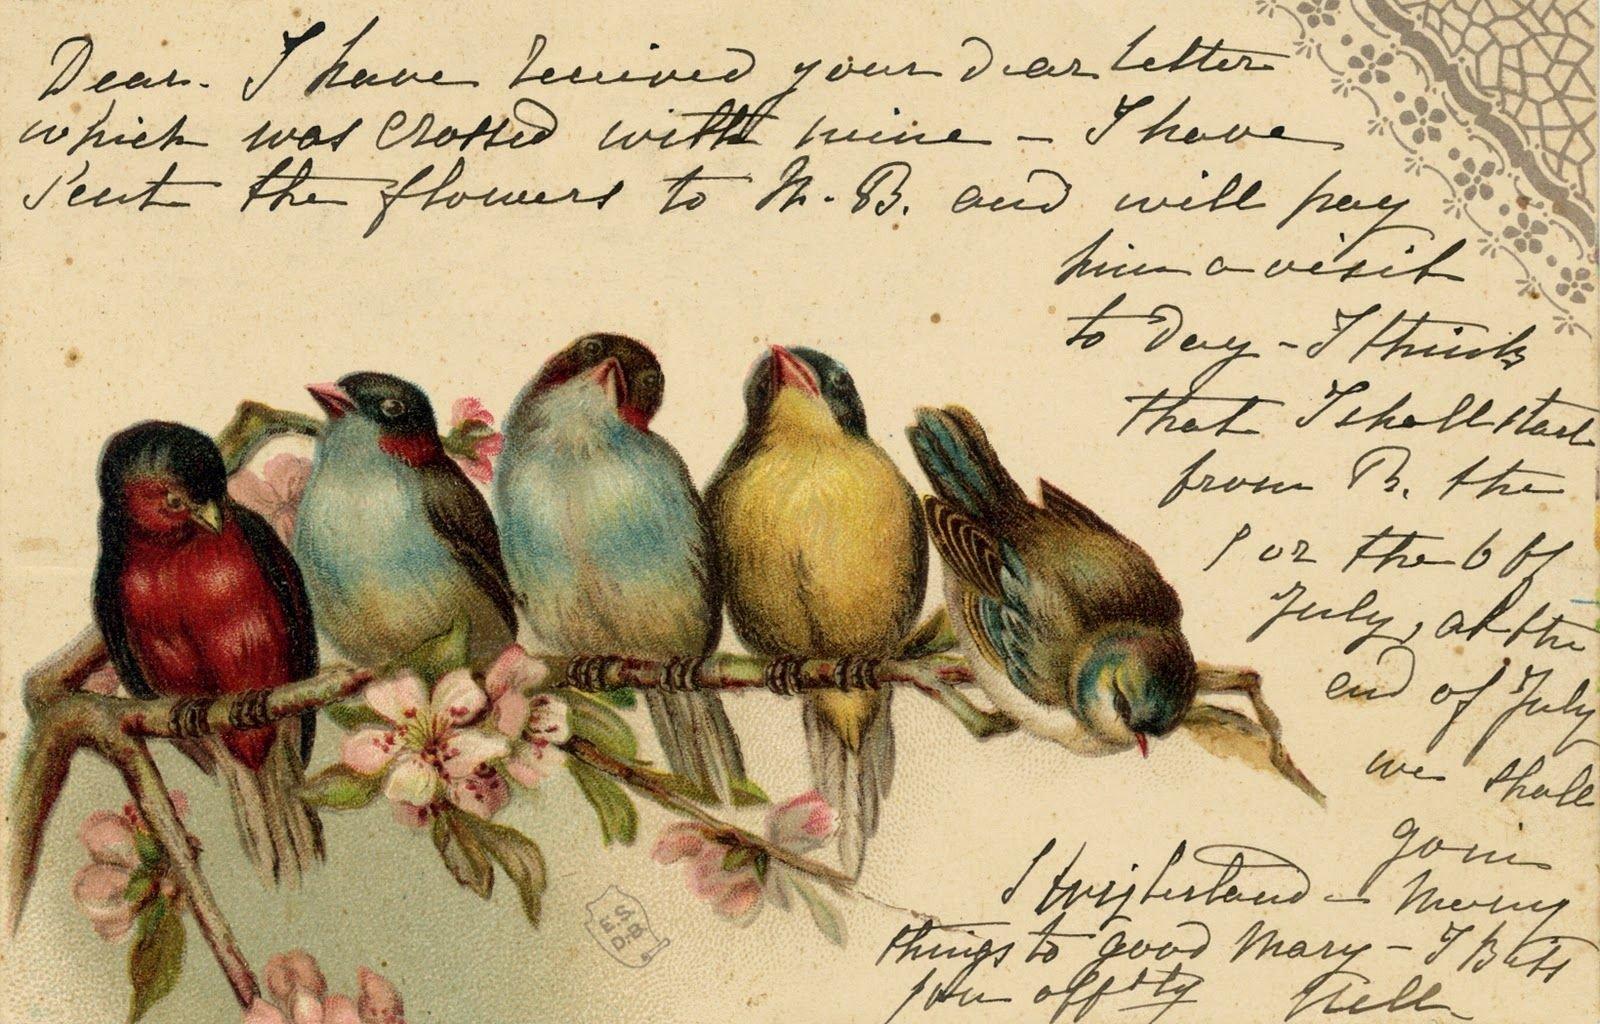 Dear. I have received your dear letter
which was crossed with mine – I have
sent the flowers to M. B. and will pay
him a visit
to day – I think
that I shall start
from B. the
5 or the 6 of
July, at the
end of July
we shall
go in
– Many
things to good Mary – I
your aff<sup>tly</sup> Nell
S B
E D